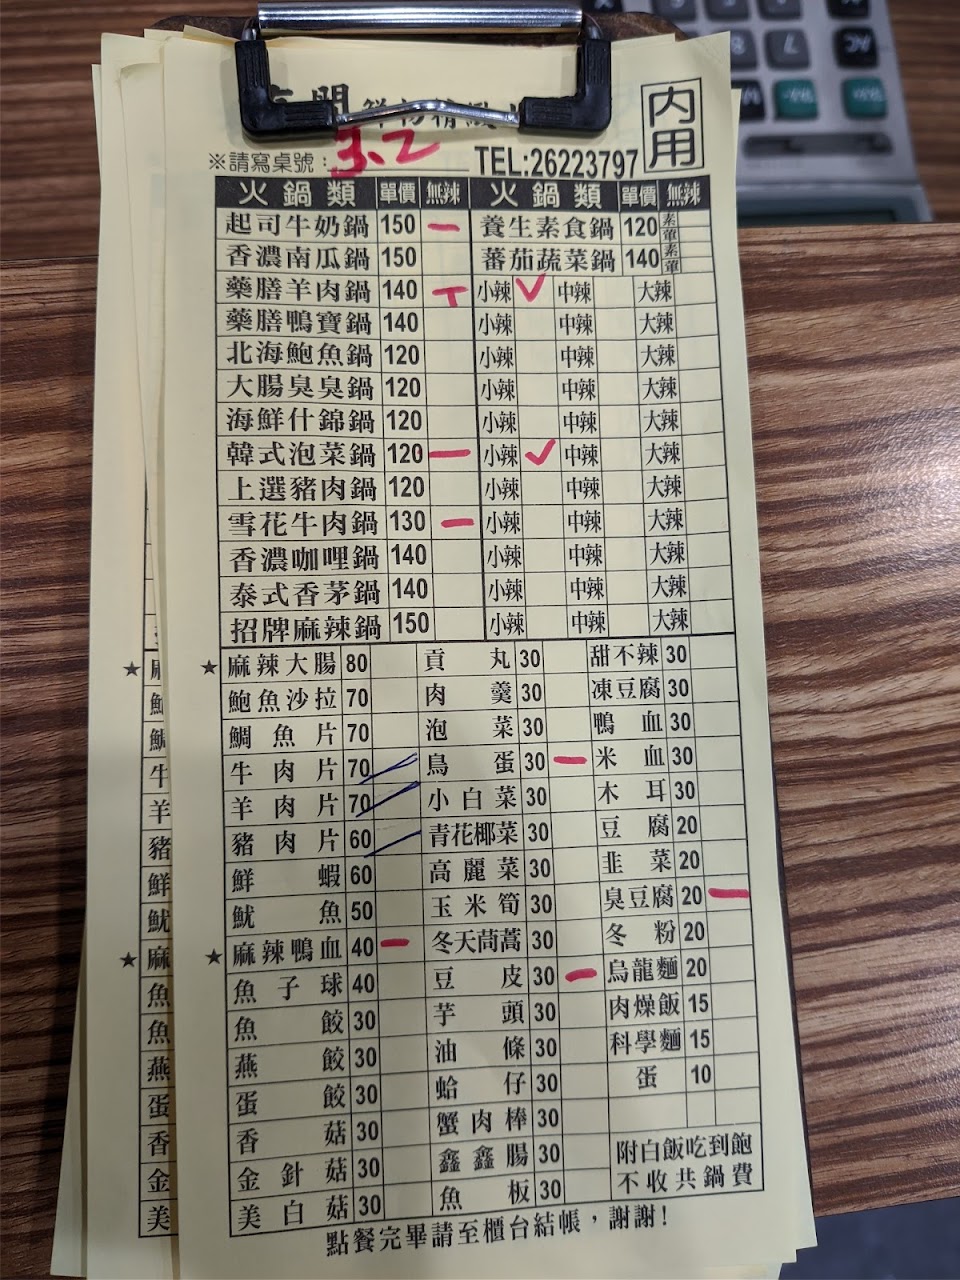 鮮
※請寫桌號： 3.2 TEL:26223797 內用
火鍋類 單價 無辣 火鍋類 單價 無辣
起司牛奶鍋 150 一 養生素食鍋 120 素 葷
香濃南瓜鍋 150 蕃茄蔬菜鍋 140 素 葷
藥膳羊肉鍋 140 T 小辣 ✓ 中辣 大辣
藥膳鴨寶鍋 140 小辣 中辣 大辣
北海鮑魚鍋 120 小辣 中辣 大辣
大腸臭臭鍋 120 小辣 中辣 大辣
海鮮什錦鍋 120 小辣 中辣 大辣
韓式泡菜鍋 120 一 小辣 ✓ 中辣 大辣
上選豬肉鍋 120 小辣 中辣 大辣
雪花牛肉鍋 130 一 小辣 中辣 大辣
香濃咖哩鍋 140 小辣 中辣 大辣
泰式香茅鍋 140 小辣 中辣 大辣
招牌麻辣鍋 150 小辣 中辣 大辣
★ 麻辣大腸 80 貢丸 30 甜不辣 30
鮑魚沙拉 70 肉羹 30 凍豆腐 30
鯛魚片 70 泡菜 30 鴨血 30
牛肉片 70 鳥蛋 30 一 米血 30
羊肉片 70 小白菜 30 木耳 30
豬肉片 60 青花椰菜 30 豆腐 20
鮮蝦 60 高麗菜 30 韭菜 20
魷魚 50 玉米筍 30 臭豆腐 20 一
★ 麻辣鴨血 40 一 冬天茼蒿 30 冬粉 20
魚子球 40 豆皮 30 一 烏龍麵 20
魚餃 30 芋頭 30 肉燥飯 15
燕餃 30 油條 30 科學麵 15
蛋餃 30 蛤仔 30 蛋 10
香菇 30 蟹肉棒 30
金針菇 30 鑫鑫腸 30 附白飯吃到飽
美白菇 30 魚板 30 不收共鍋費
點餐完畢請至櫃台結帳，謝謝!
★
牛
羊
豬
鮮
魷
★ 麻
魚
魚
燕
蛋
香
金
美
AC
7